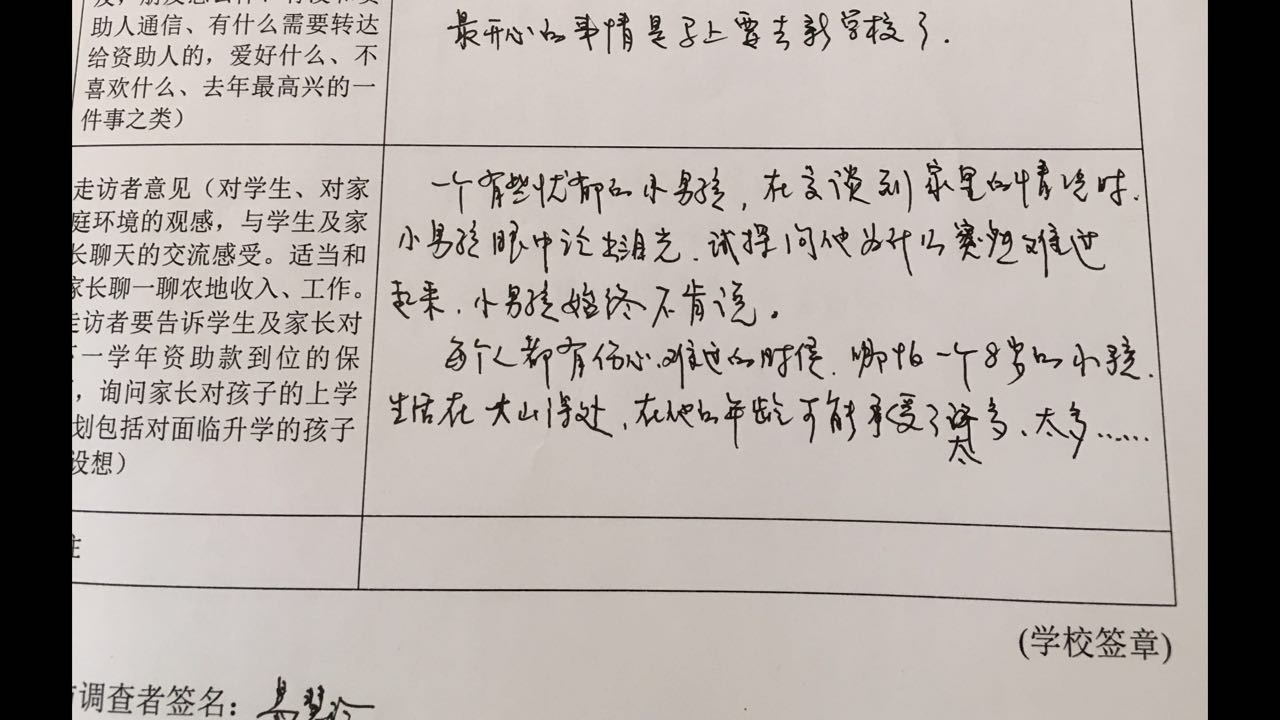 助人通信、有什么需要转达
给资助人的，爱好什么、不
喜欢什么、去年最高兴的一
件事之类）
最开心的事情是马上要去新学校了.
走访者意见（对学生、对家
庭环境的观感，与学生及家
长聊天的交流感受。适当和
家长聊一聊农地收入、工作。
走访者要告诉学生及家长对
一学年资助款到位的保
，询问家长对孩子的上学
划包括对面临升学的孩子
设想）
一个有些忧郁的小男孩，在交谈到家里的情况时.
小男孩眼中泛出泪光.试探问他为什么突然难过
起来.小男孩始终不肯说。
每个人都有伤心.难过的时候.哪怕一个8岁的小孩.
生活在大山深处.在他的年龄可能承受了太多、太多……
注
(学校签章)
调查者签名：